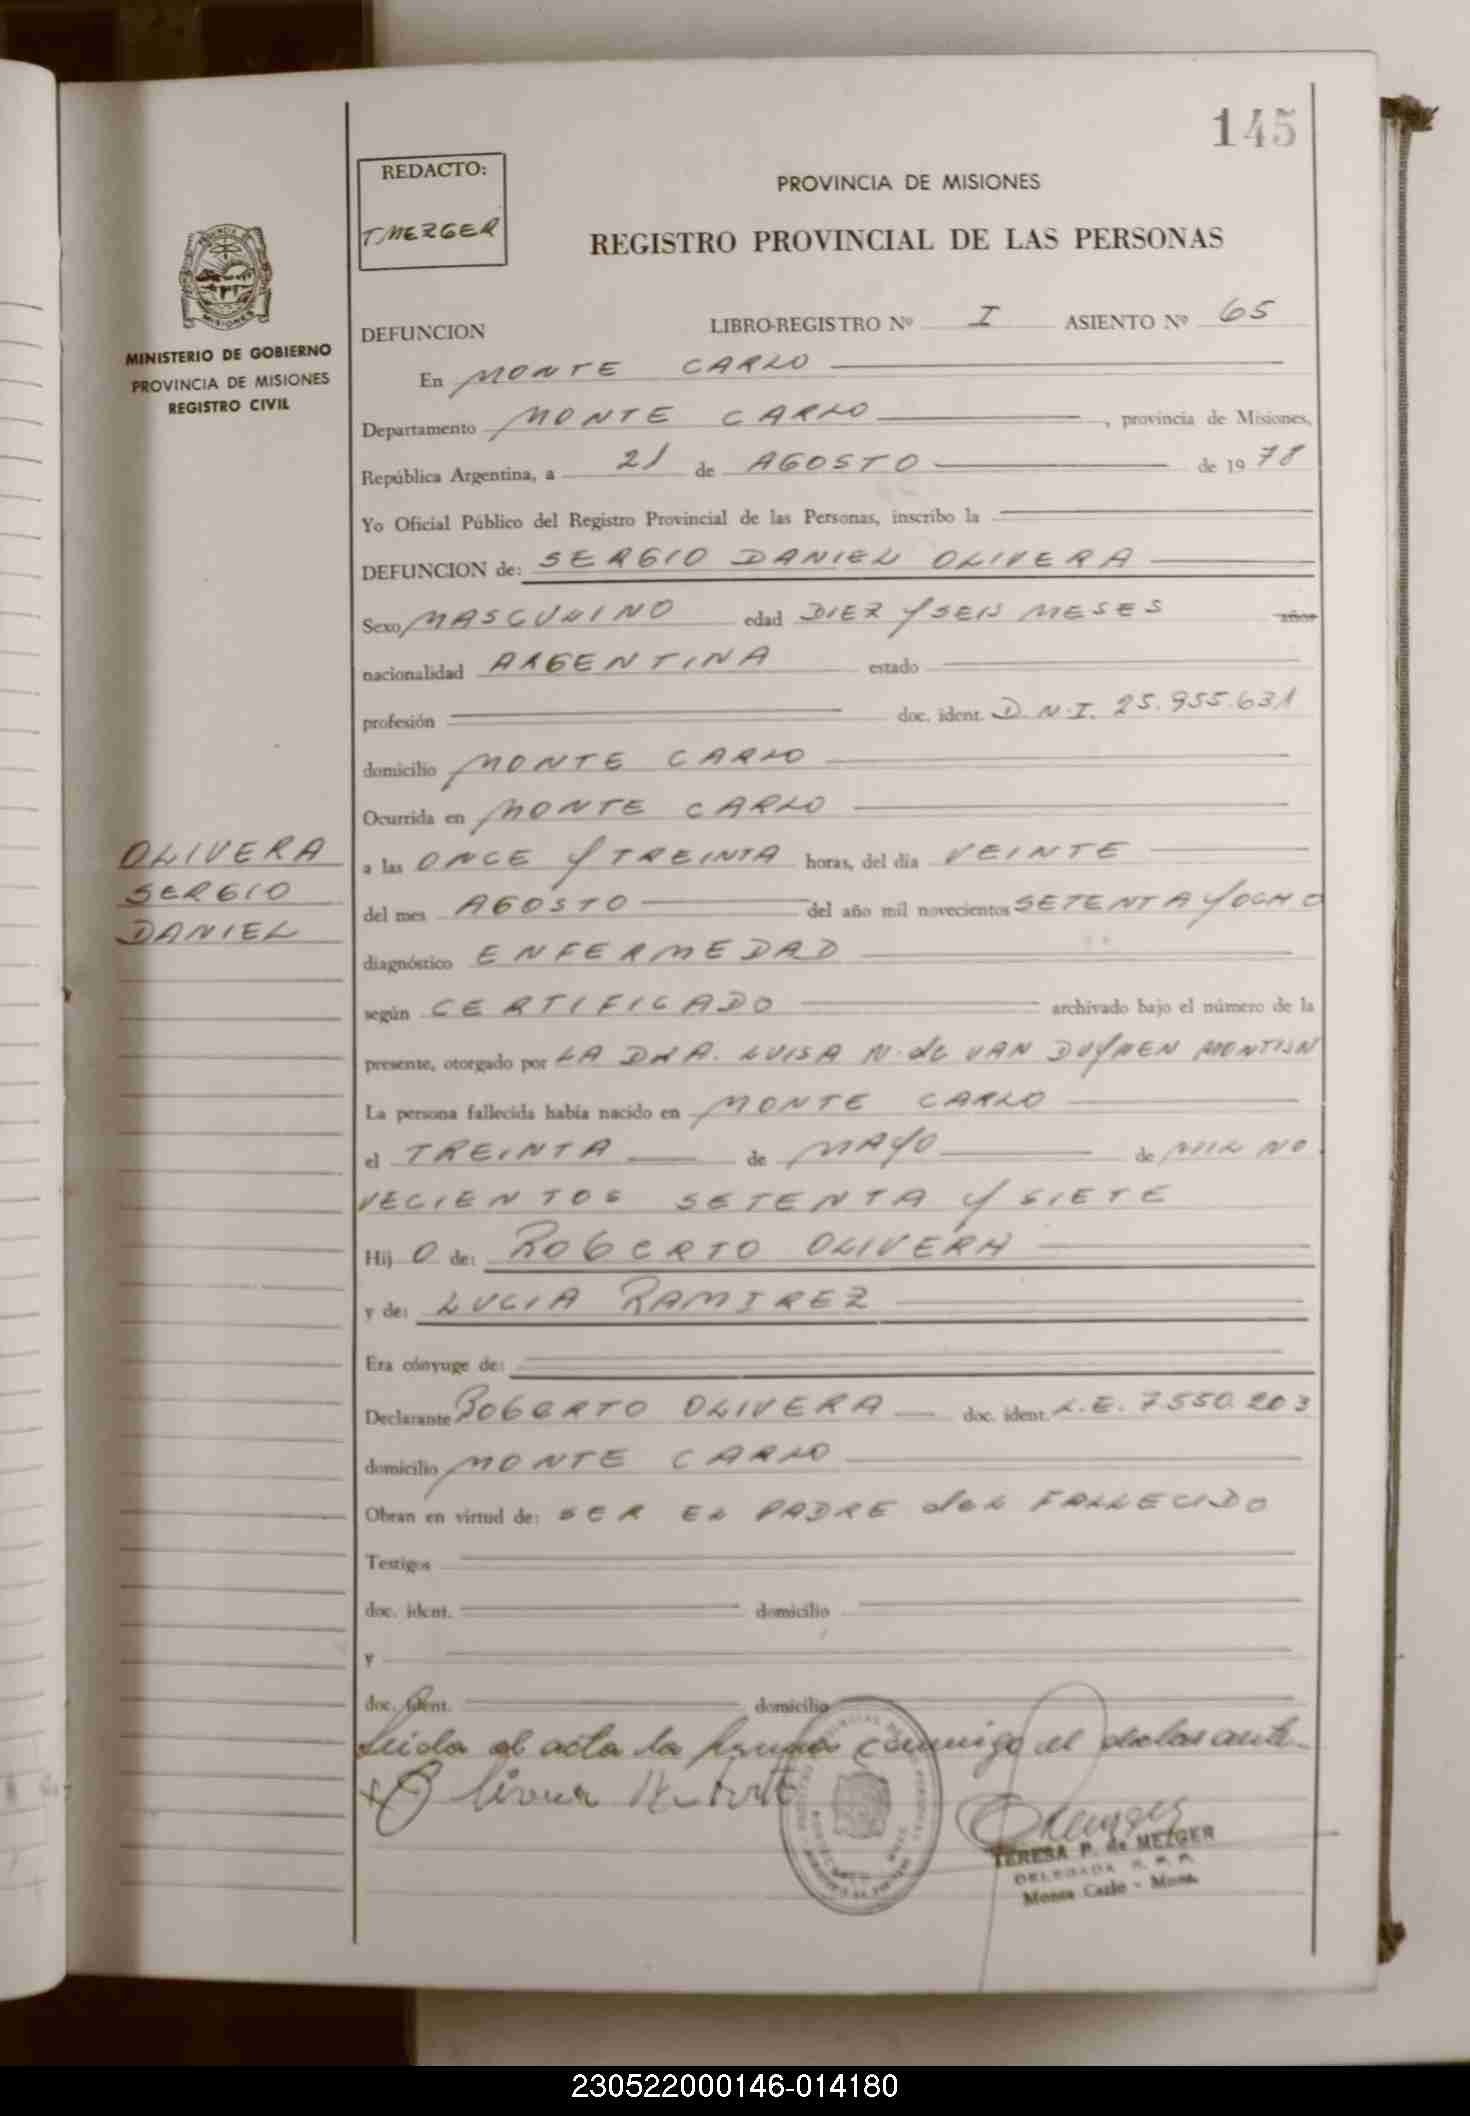 145
REDACTO:
T. MEZGER
PROVINCIA DE MISIONES
REGISTRO PROVINCIAL DE LAS PERSONAS
MISIONES
MINISTERIO DE GOBIERNO
PROVINCIA DE MISIONES
REGISTRO CIVIL
DEFUNCION LIBRO-REGISTRO Nº I ASIENTO Nº 65
En MONTE CARLO
Departamento MONTE CARLO, provincia de Misiones,
República Argentina, a 21 de AGOSTO de 1978
Yo Oficial Público del Registro Provincial de las Personas, inscribo la
DEFUNCION de: SERGIO DANIEL OLIVERA
Sexo MASCULINO edad DIEZ Y SEIS MESES años
nacionalidad ARGENTINA estado
profesión doc. ident. D.N.I. 25.955.631
domicilio MONTE CARLO
Ocurrida en MONTE CARLO
OLIVERA
SERGIO
DANIEL
a las ONCE Y TREINTA horas, del día VEINTE
del mes AGOSTO del año mil novecientos SETENTA Y OCHO
diagnóstico ENFERMEDAD
según CERTIFICADO archivado bajo el número de la
presente, otorgado por LA DRA. LUISA N. de VAN DUYNEN MONTIJN
La persona fallecida había nacido en MONTE CARLO
el TREINTA de MAYO de MIL NO
VECIENTOS SETENTA Y SIETE
Hij O de: ROBERTO OLIVERA
y de: LUCIA RAMIREZ
Era cónyuge de:
Declarante ROBERTO OLIVERA doc. ident. L.E. 7.550.203
domicilio MONTE CARLO
Obran en virtud de: SER EL PADRE del FALLECIDO
Testigos
doc. ident. domicilio
y
doc. ident. domicilio
Leida el acta la firma conmigo el declarante
Olivera
TERESA P. de MEZGER
DELEGADA R. P. P.
Monte Carlo - Mnes.
230522000146-014180